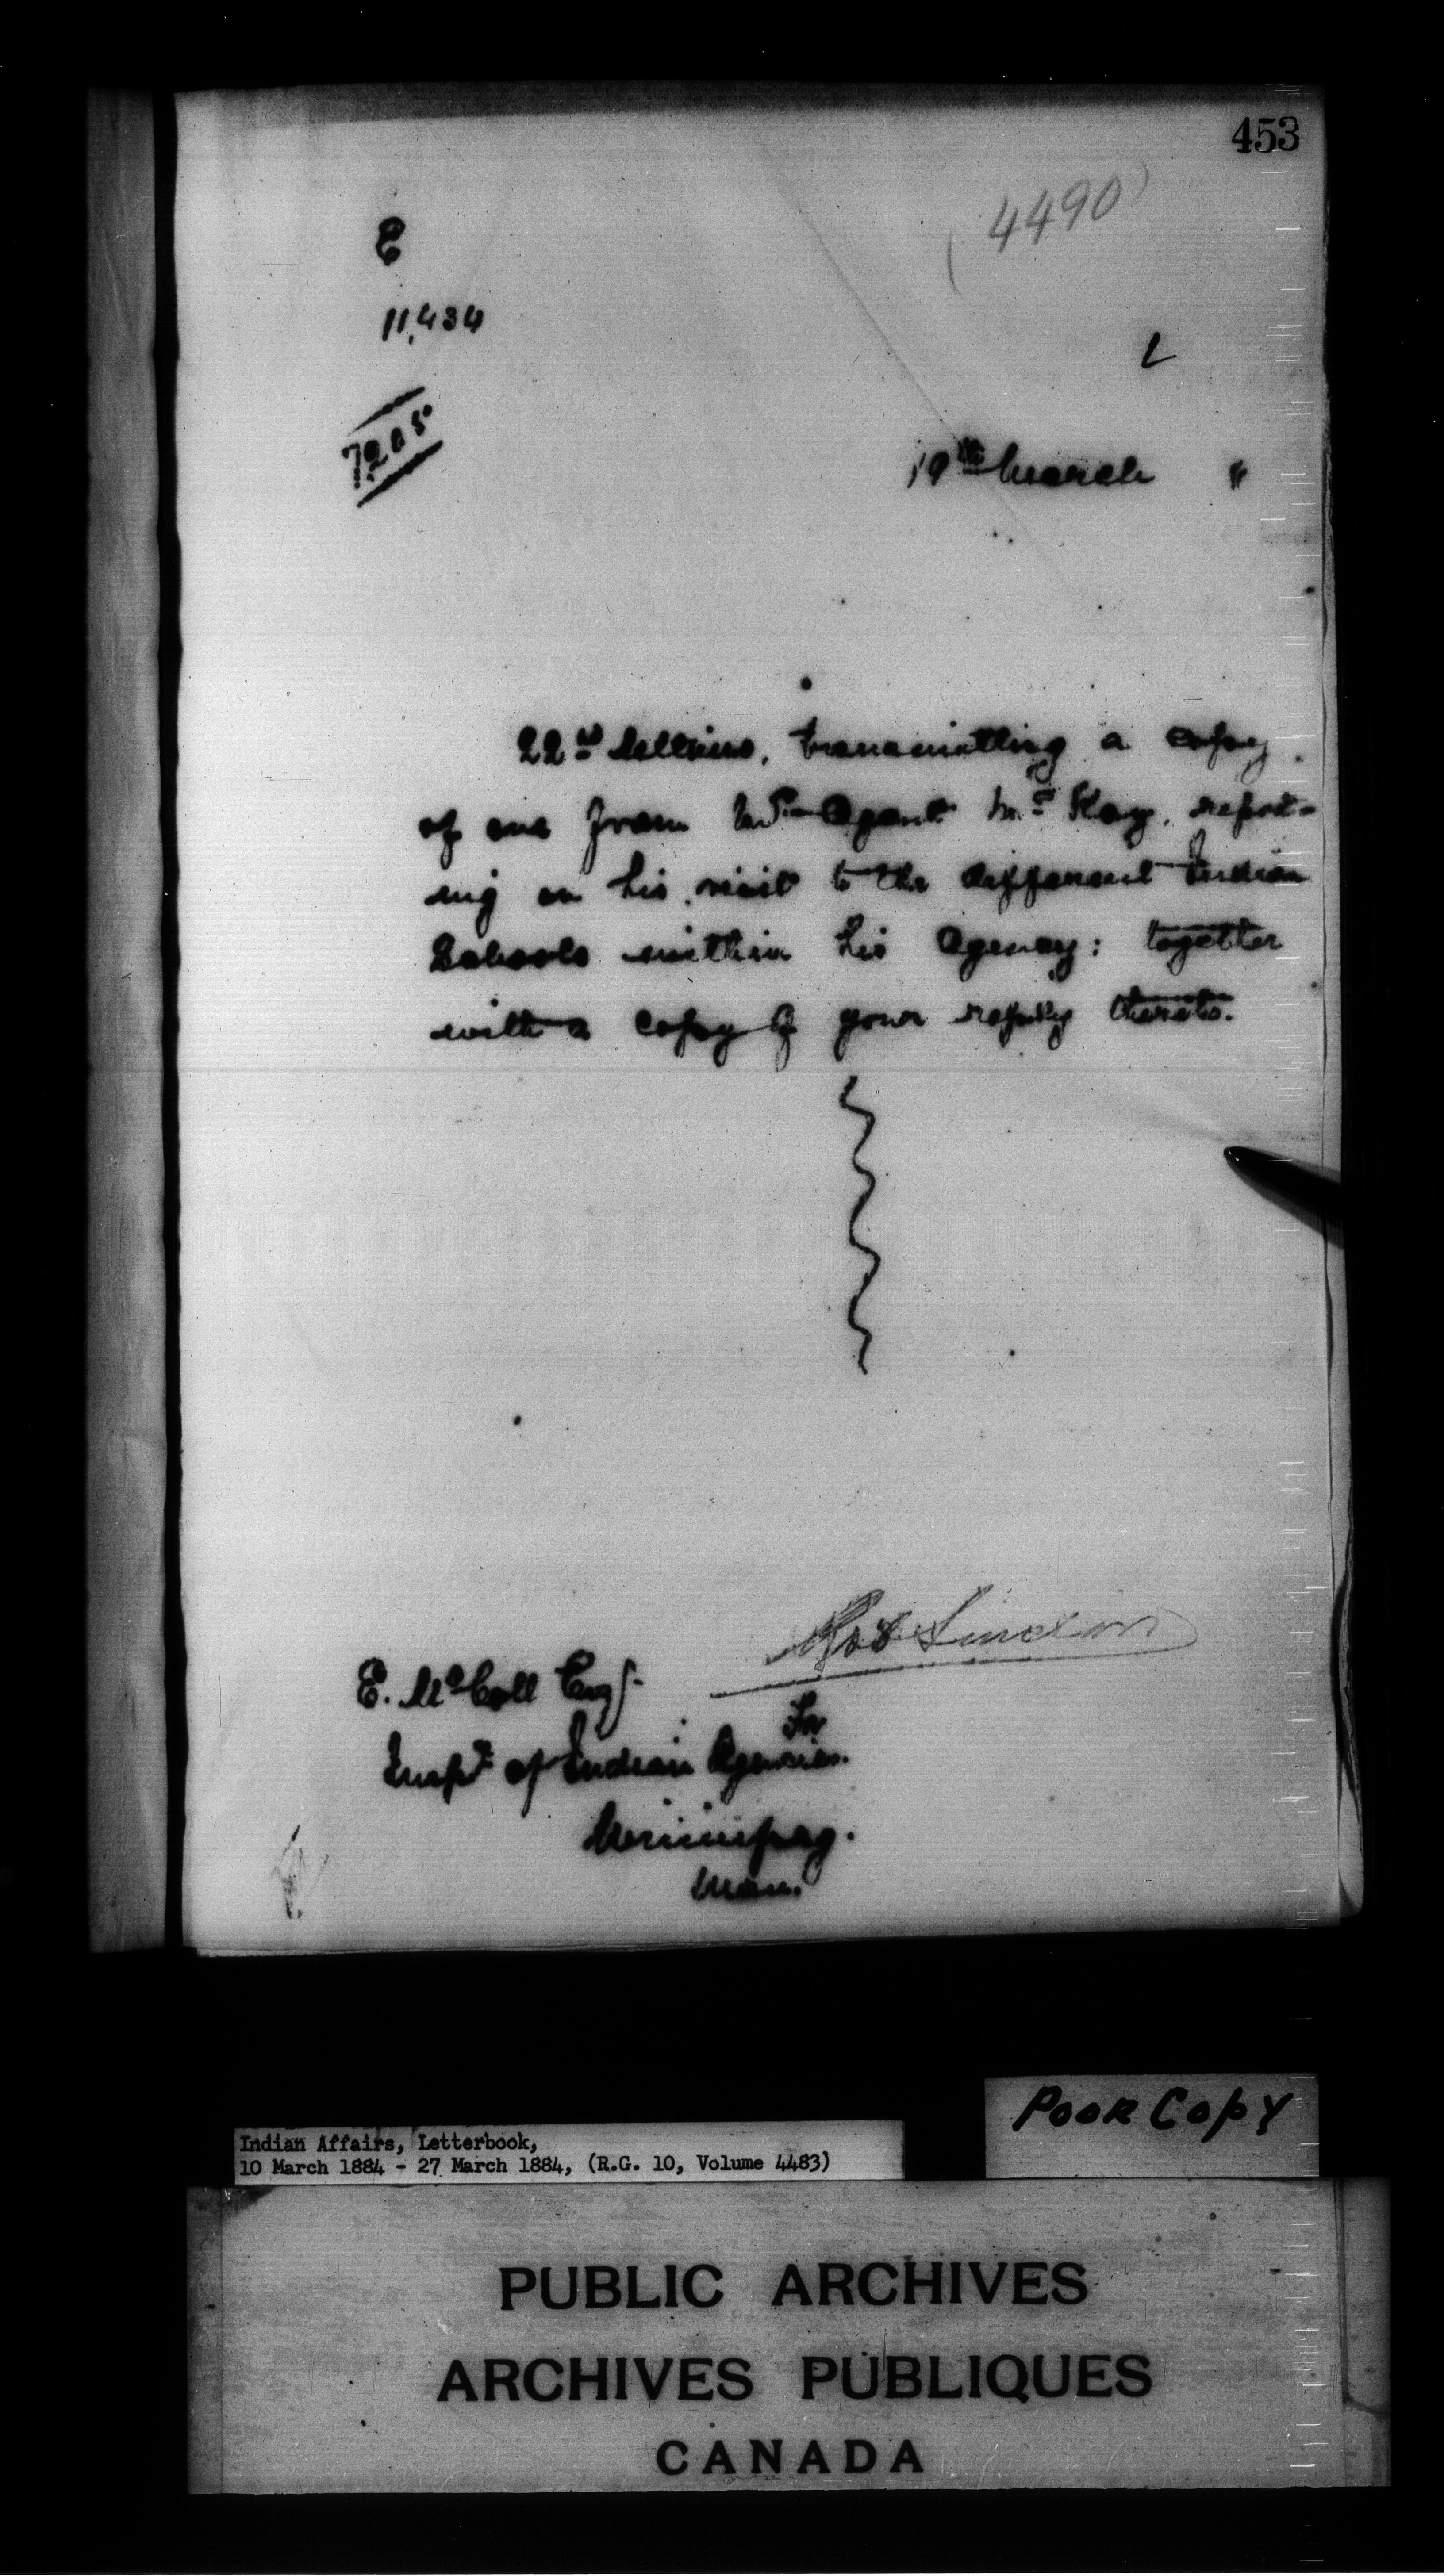 453
(4490)
E
11,434
L
7,205
19th March "
22nd Ultimo, transmitting a copy
of one from Mr Agent McKay, report-
ing on his visit to the different Indian
Schools within his Agency; together
with a copy of your reply thereto.
Rob Sinclair
For
E. McColl Esq.
Inspr of Indian Agencies.
Winnipeg.
Man.
Poor Copy
Indian Affairs, Letterbook,
10 March 1884 - 27 March 1884, (R.G. 10, Volume 4483)
PUBLIC ARCHIVES
ARCHIVES PUBLIQUES
CANADA